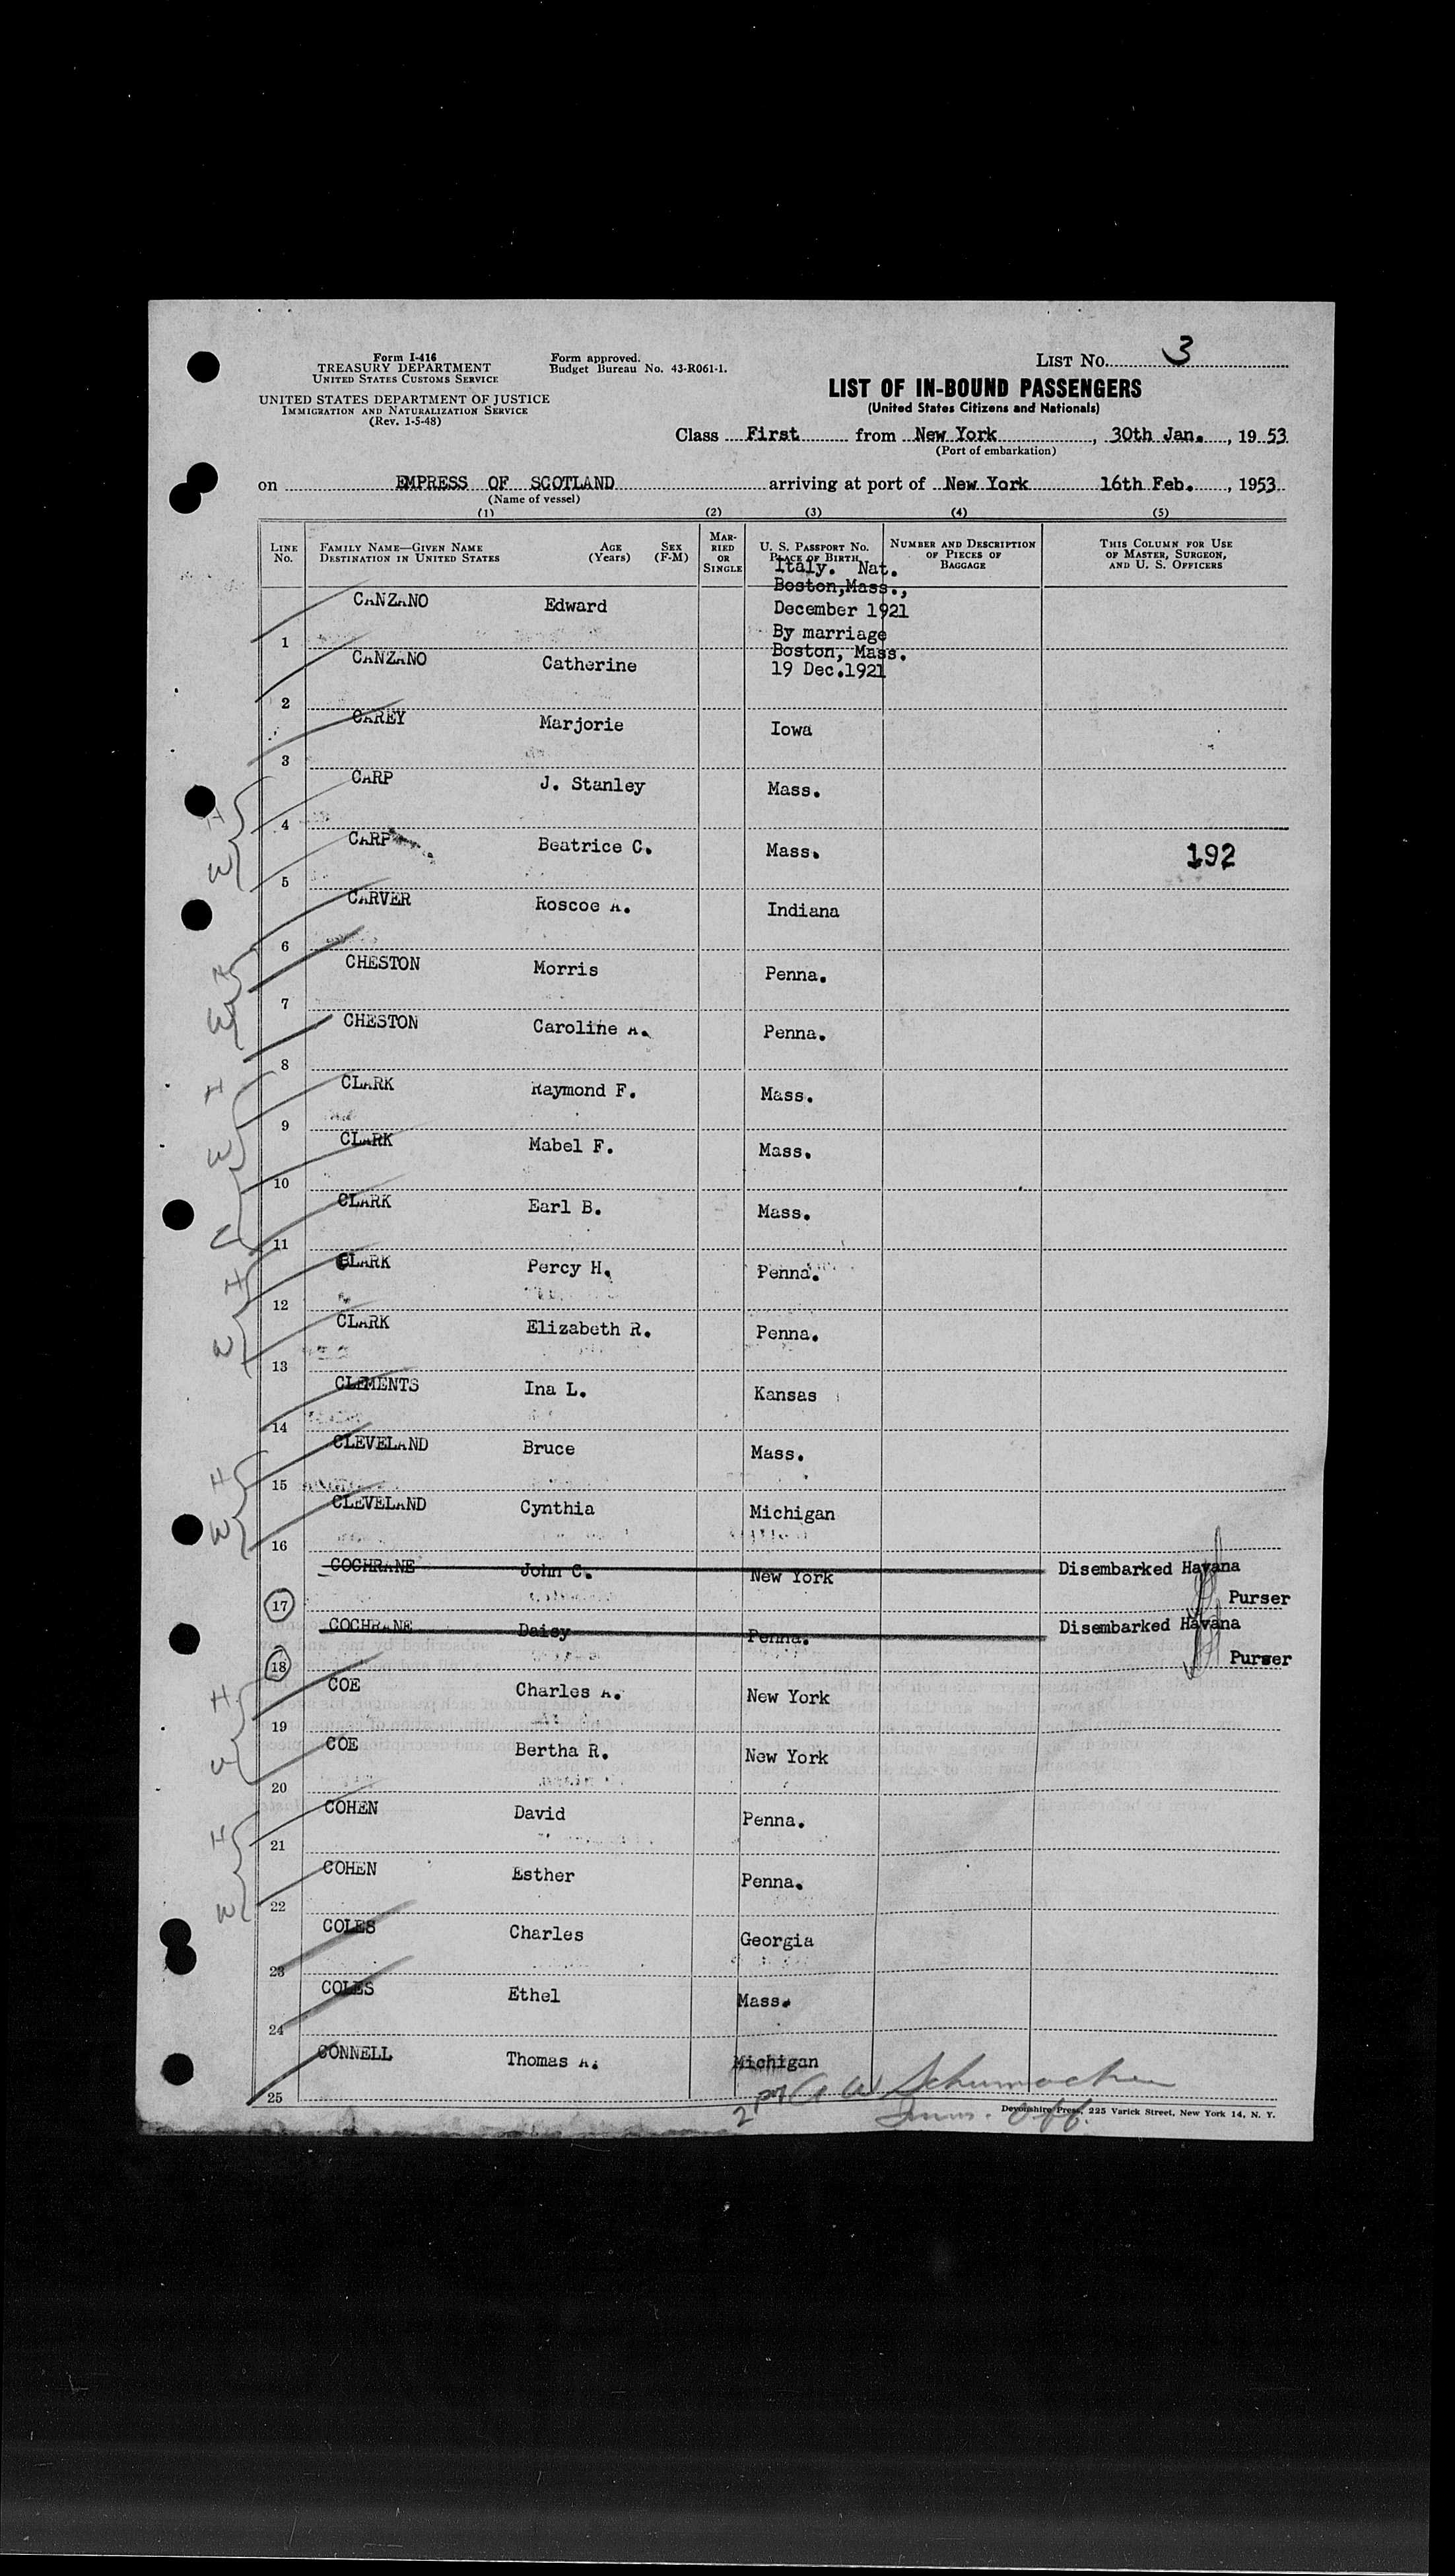 Form I-416
TREASURY DEPARTMENT
UNITED STATES CUSTOMS SERVICE
UNITED STATES DEPARTMENT OF JUSTICE
IMMIGRATION AND NATURALIZATION SERVICE
(Rev. 1-5-48)
Form approved.
Budget Bureau No. 43-R061-1.
LIST NO. 3
LIST OF IN-BOUND PASSENGERS
(United States Citizens and Nationals)
Class First from New York, 30th Jan., 1953
(Port of embarkation)
on EMPRESS OF SCOTLAND arriving at port of New York 16th Feb., 1953
(Name of vessel)
(1) (2) (3) (4) (5)
LINE NO. FAMILY NAME—GIVEN NAME DESTINATION IN UNITED STATES AGE (Years) SEX (F-M) MARRIED OR SINGLE U. S. PASSPORT NO. PLACE OF BIRTH NUMBER AND DESCRIPTION OF PIECES OF BAGGAGE THIS COLUMN FOR USE OF MASTER, SURGEON, AND U. S. OFFICERS
1 CANZANO Edward Italy. Nat. Boston,Mass., December 1921
2 CANZANO Catherine By marriage Boston, Mass. 19 Dec.1921
3 CAREY Marjorie Iowa
H 4 CARP J. Stanley Mass.
W 5 CARP Beatrice C. Mass. 192
6 CARVER Roscoe A. Indiana
H 7 CHESTON Morris Penna.
W 8 CHESTON Caroline A. Penna.
H 9 CLARK Raymond F. Mass.
W 10 CLARK Mabel F. Mass.
C 11 CLARK Earl B. Mass.
H 12 CLARK Percy H. Penna.
W 13 CLARK Elizabeth R. Penna.
14 CLEMENTS Ina L. Kansas
H 15 CLEVELAND Bruce Mass.
W 16 CLEVELAND Cynthia Michigan
17 COCHRANE John C. New York Disembarked Havana Purser
18 COCHRANE Daisy Penna. Disembarked Havana Purser
H 19 COE Charles A. New York
W 20 COE Bertha R. New York
H 21 COHEN David Penna.
W 22 COHEN Esther Penna.
23 COLES Charles Georgia
24 COLES Ethel Mass.
25 CONNELL Thomas A. Michigan
W Schumacher
Imm. Off.
2
Devonshire Press, 225 Varick Street, New York 14, N. Y.